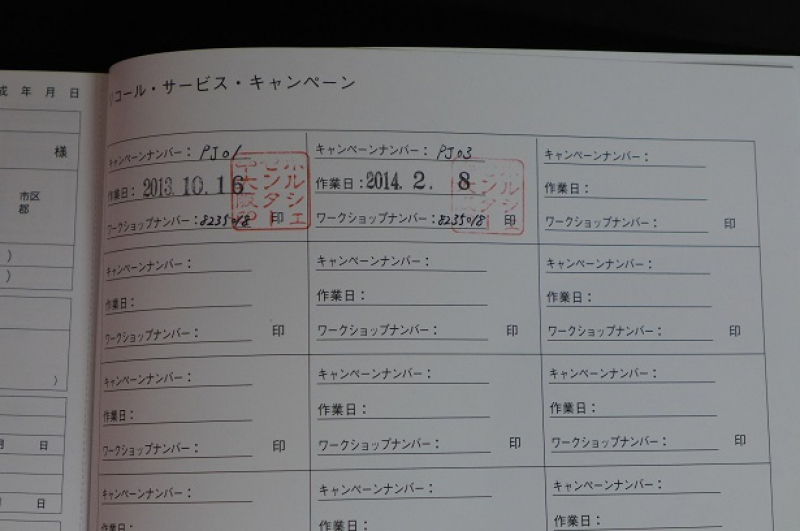 成 年 月 日
様
市区
郡
)
)
)
月 日
日
リコール・サービス・キャンペーン
キャンペーンナンバー: PJ01
作業日: 2013.10.16
ワークショップナンバー: 8235018 印
ポルシェ
センター
キャンペーンナンバー: PJ03
作業日: 2014.2.8
ワークショップナンバー: 8235018 印
キャンペーンナンバー:
作業日:
ワークショップナンバー: 印
キャンペーンナンバー:
作業日:
ワークショップナンバー: 印
キャンペーンナンバー:
作業日:
ワークショップナンバー: 印
キャンペーンナンバー:
作業日:
ワークショップナンバー: 印
キャンペーンナンバー:
作業日:
ワークショップナンバー: 印
キャンペーンナンバー:
作業日:
ワークショップナンバー: 印
キャンペーンナンバー:
作業日:
ワークショップナンバー: 印
キャンペーンナンバー:
作業日:
キャンペーンナンバー:
作業日:
キャンペーンナンバー:
作業日: